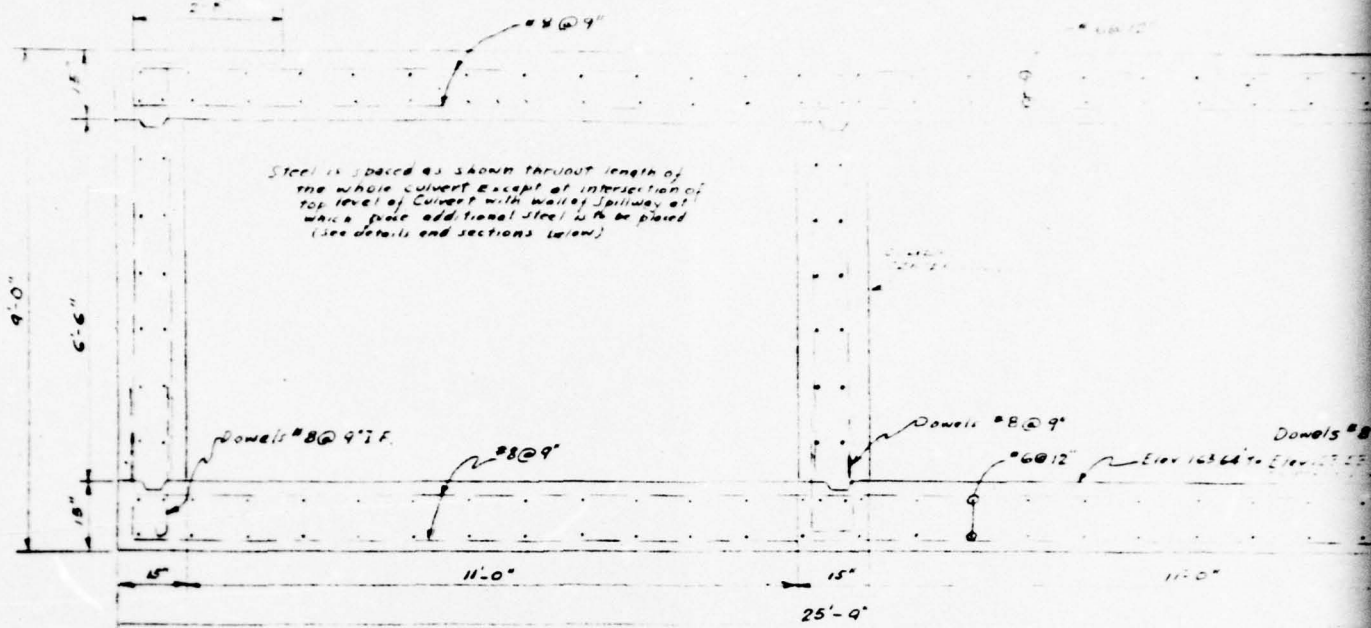 #8@9"
15"
Steel is spaced as shown thruout length of
the whole culvert Except at intersection of
top level of Culvert with wall of Spillway at
which place additional steel is to be placed
(see details and sections below)
9'-0"
6'-6"
Dowels #8@9" I.F.
#8@9"
Dowels #8@9"
#6@12"
Dowels #8
Elev 163.64 to Elev
15"
15"
11'-0"
15"
11'-0"
25'-9"